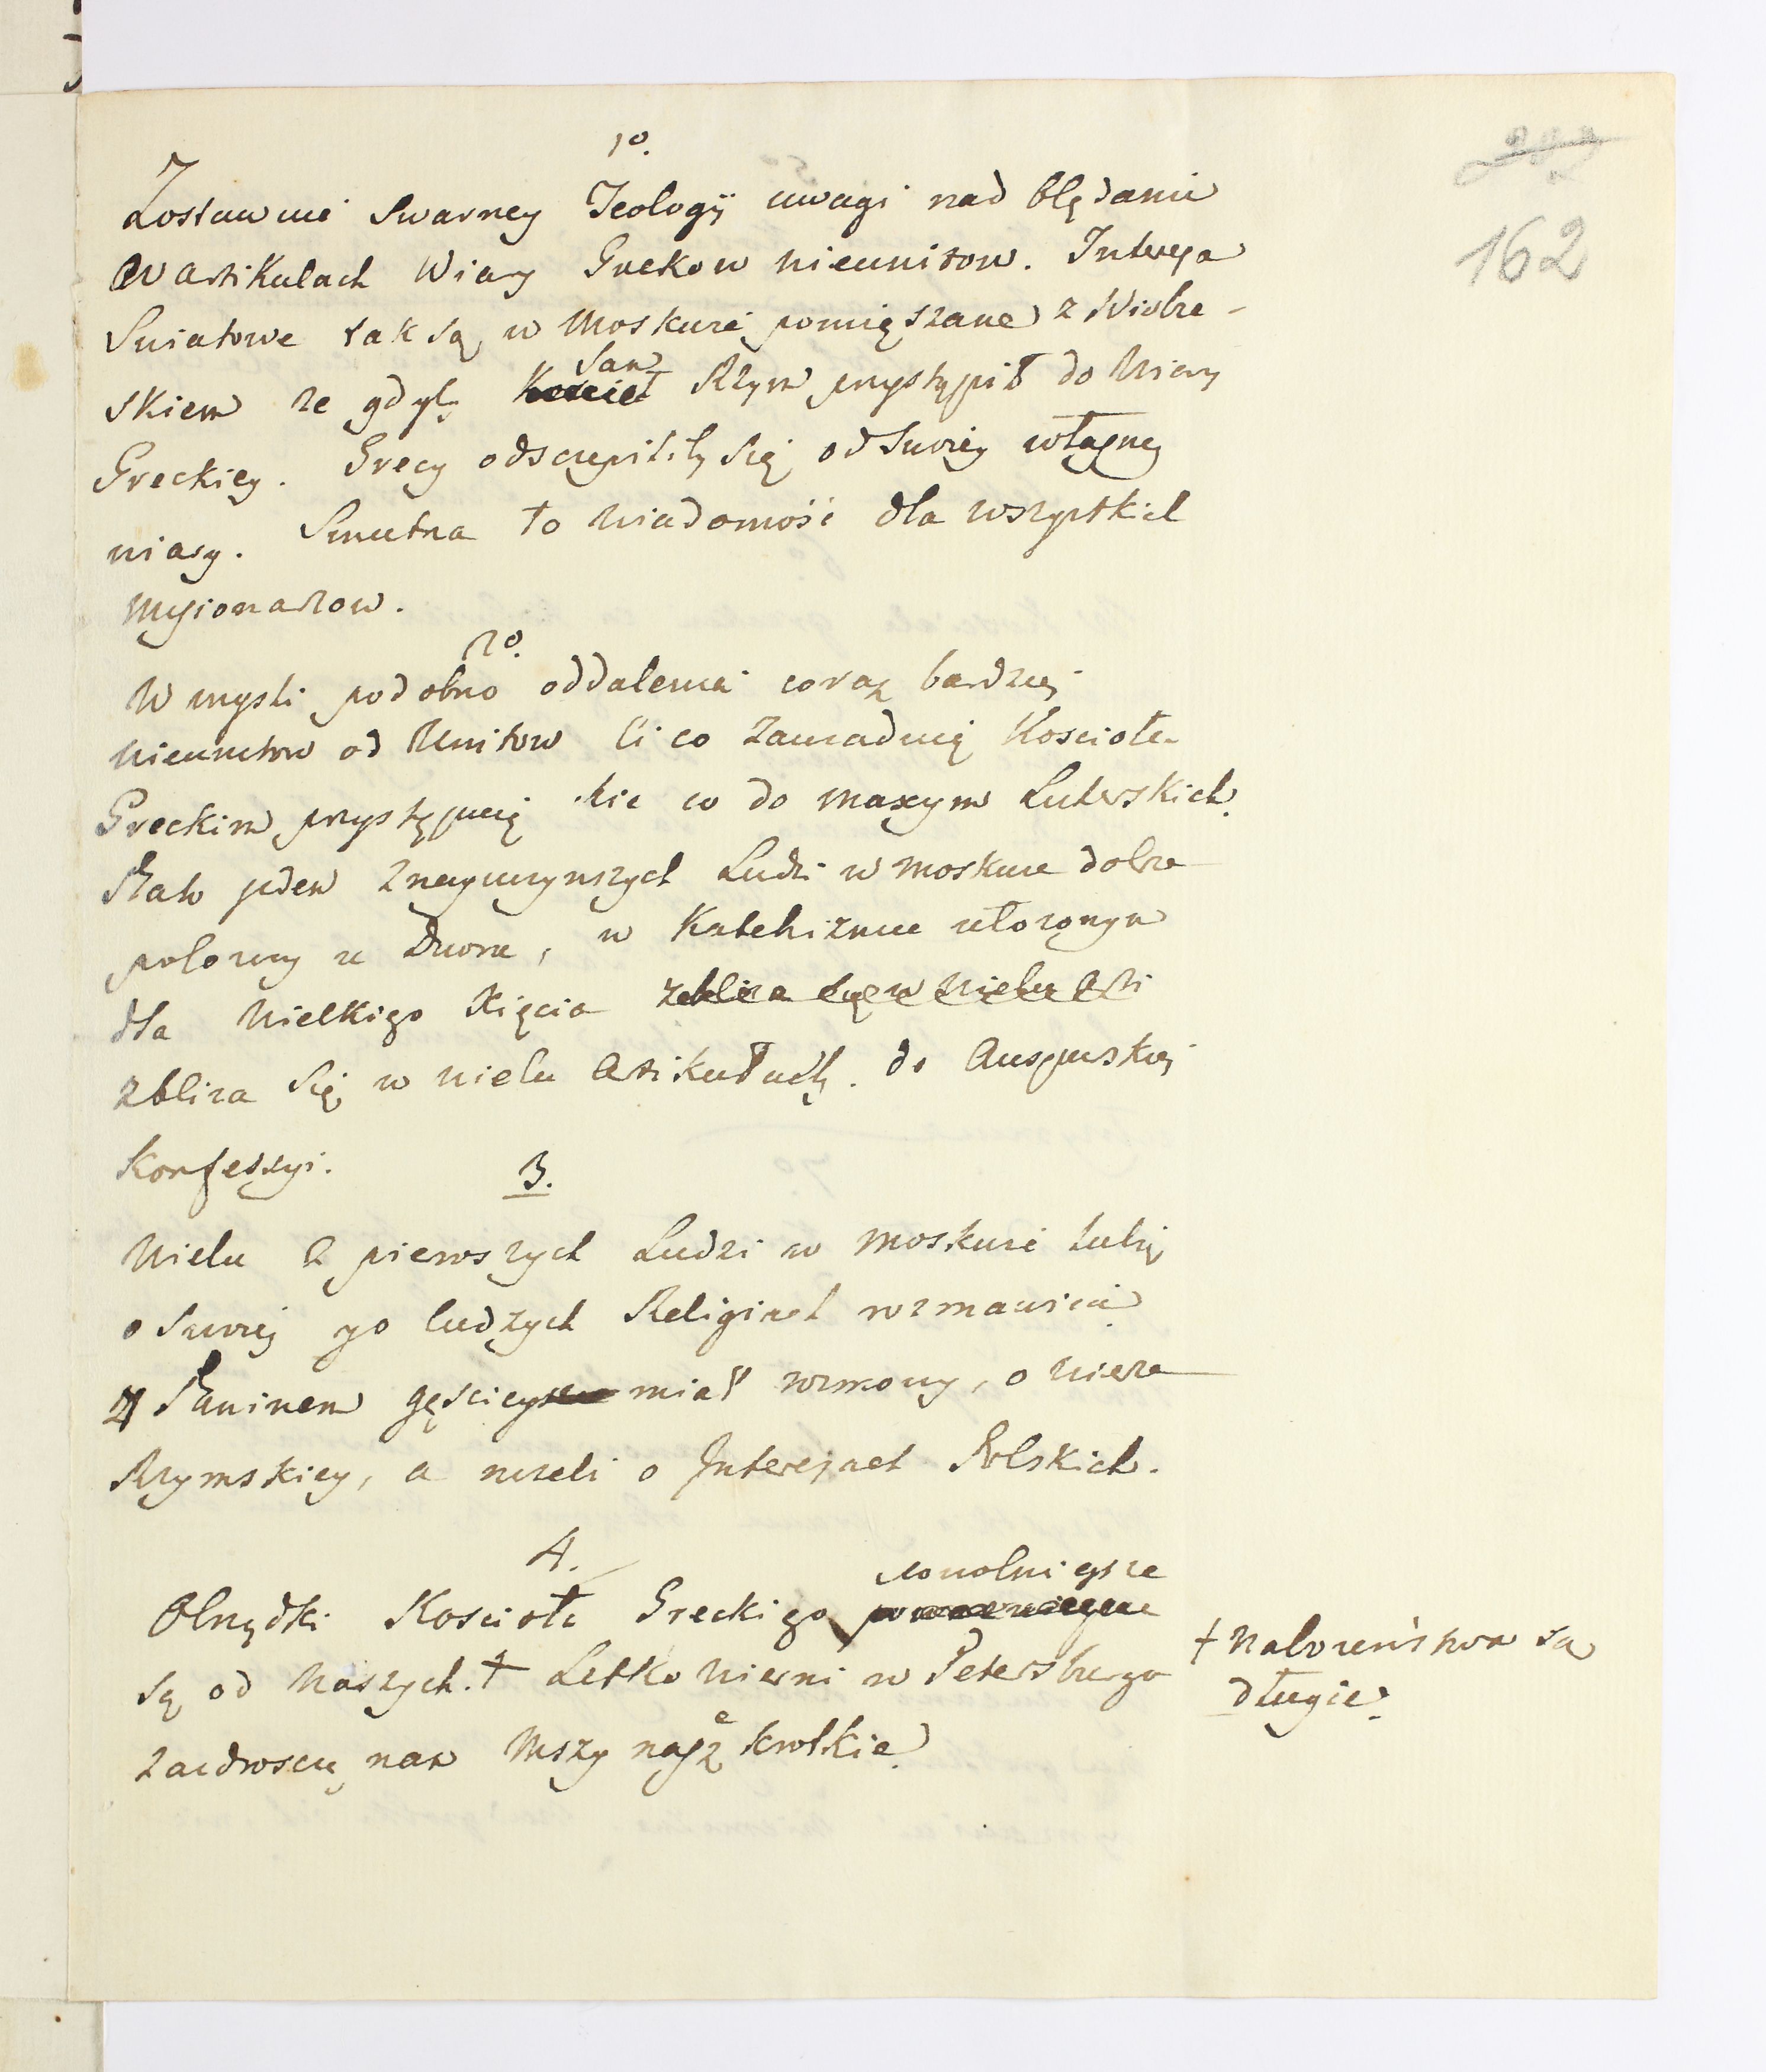 162
1o.
Zostawmi Swarney Teologij uwagi nad błędami
w artikulach Wiary Grekow nieunitow. Interesa
Swiatowe tak są w Moskwie pomięszane z Niebie-
skiem ze gdyby Kosciet Sam Rzym przystąpił do Wiary
Greckiey. Grecy odszczepiliby się od Swoiey własney
wiary. Smutna to wiadomość dla wszystkich
Missionarzow.
2o.
W mysli podobno oddalenia coraz bardziej
nieunitow od Unitow Ci co zawiaduią Kosciołem
Greckim przystępuią nie co do maxym Luterskich.
Plato jeden z nayuczenszych Ludzi w Moskwie dobrze
położony u Dworu, w Katehizmie ułożonym
dla Wielkiego Xięcia zbliza się w wielu Arti
zbliza się w wielu Artikułach. do Auspurskiej
Konfessyi.
3.
Wielu z pierwszych Ludzi w Moskwie lubią
o Swoiej y o Cudzych Religiach rozmawiać
z Paninem gęściey miał rozmowy, o wierze
Rzymskiey, a nizeli o Interesach Polskich.
4.
Obrządki Kosciołа Greckiego powolnieysze
są od Naszych. † Letko wierni w Petersburgu
zazdroszczą nam Mszy naszę krotkie.
† Nabożeństwa są
długie.